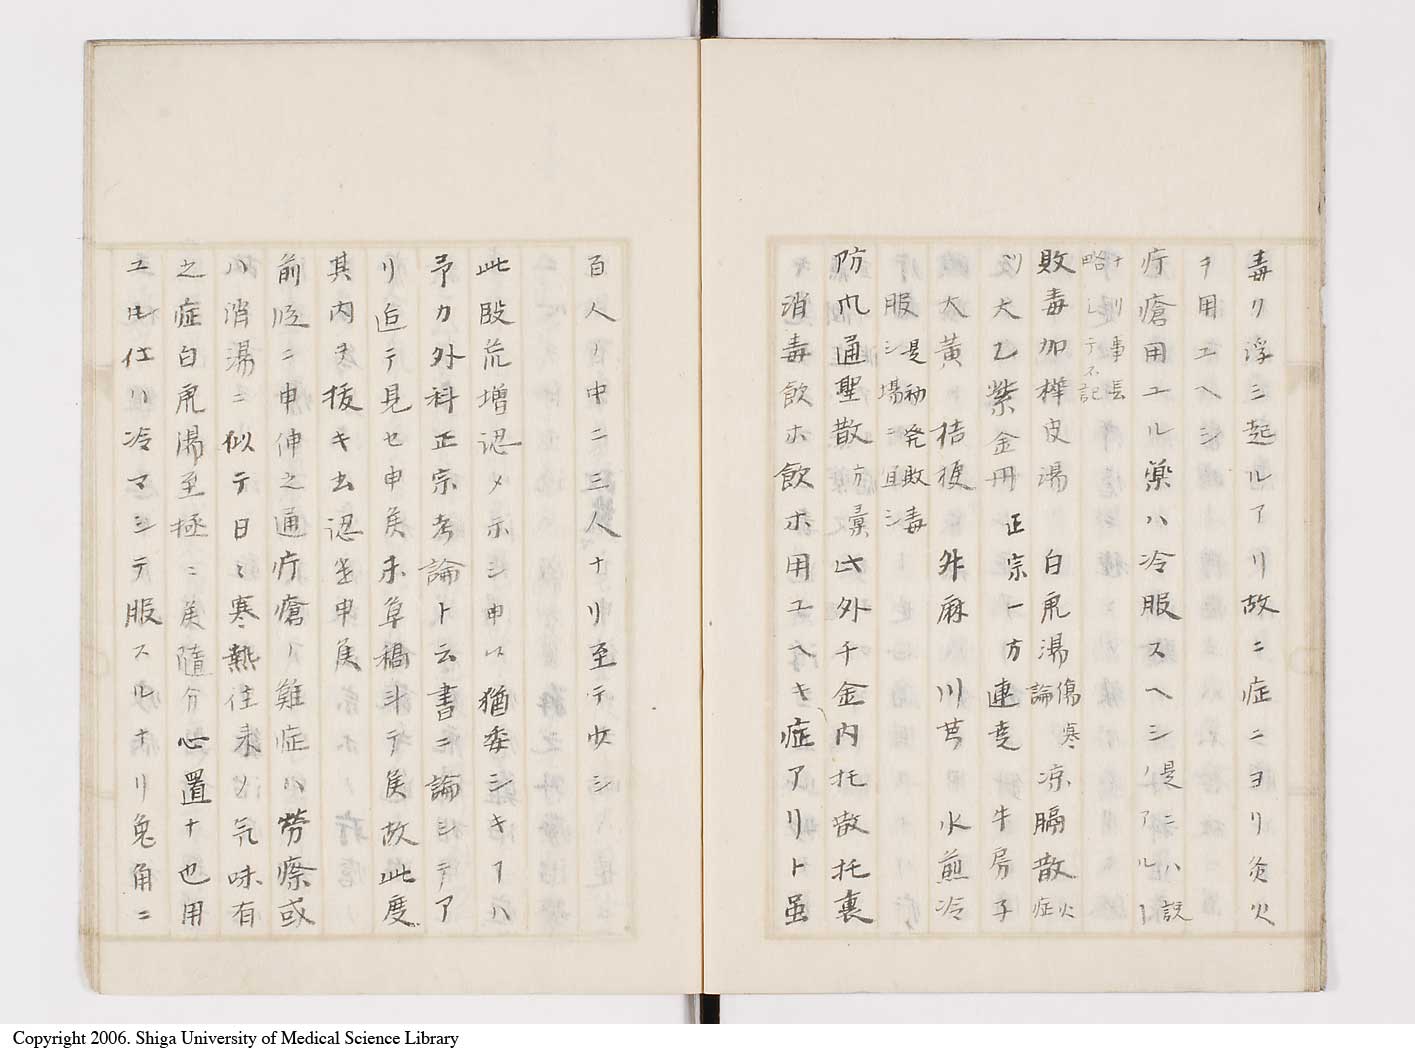 毒リ浮ミ起ルアリ故ニ症ニヨリ灸火
ヲ用エヘシ
疔瘡用エル薬ハ冷服スヘシ是ニハ説
ノアル
ナリ事長
略シテ不記
敗毒加樺皮湯 白虎湯傷寒論 凉膈散火症
大乙紫金丹 正宗一方 連堯 牛房子
大黄ト桔梗 升麻 川芎 水煎冷
服シ場シ且シ
是初発敗毒
防風通聖散方彙 此外千金内托散托裏
消毒飲ホ飲ホ用エヘキ症アリト虽
百人ノ中ニ三人ナリ至テ少シ
此段荒増認メ示シ申候猶委シキ ハ
予カ外科正宗考論ト云書ニ論シテア
リ追テ見セ申矣未草稿ニテ矣故此度
其内ヲ抜キ去認 申矣
前 ニ申伸之通疔瘡ノ難症ハ労瘵或
ハ消湯ニ似テ日々寒熱往来ノ気味有
之症白虎湯至極ニ矣随分心置ナ也用
エル 冷マシテ服スルナリ兎角ニ